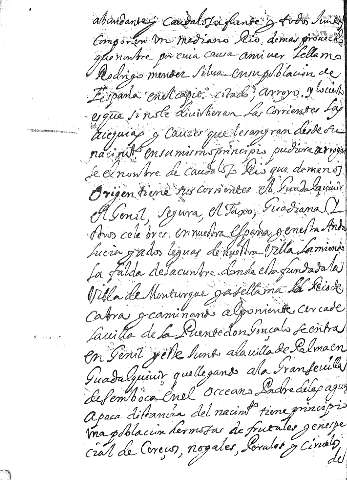 abundante y caudalosa fuente y todo su
componen un mediano Rio, demas
que nombre por cuia causa a mi ver le llamo
Rodrigo mendez silva en su poblacion de
España en el citado arroyo, y lo cierto
es que si no le divirtieran las corrientes las
acequias y Cauces que le sangran desde su
nacimto en su mismo principio pudiera
se el nombre de caudal Rio que de menos
Origen tiene sus corrientes el Guadalquivir
el Genil, segura, el Taxo, Guadiana
otros celebres en nuestra españa, y en esta Anda
lucia dos leguas de nuestra Villa
la falda de la cumbre donde esta fundada la
Villa de Monturque pasa el rio de
cabra y caminando al poniente cerca de
la villa de la Puente don Gonzalo se entra
en Genil y este Junto a la villa de Palma en
Guadalquivir que llegando a la Gran sevilla
desemboca en el occeano Padre de las aguas
a poca distancia del nacimto tiene principio
una poblacion hermosa de frutales y en espe
cial de Cereços, nogales, Perales y Ciruelos
de